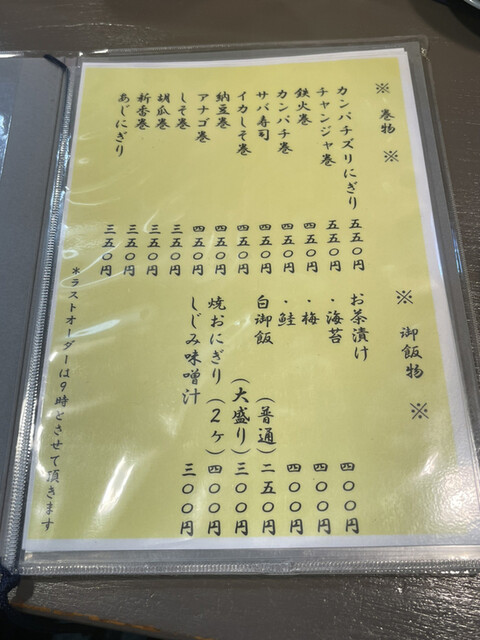 ※ 巻物 ※
カンパチズリにぎり 五五〇円
チャンジャ巻 五五〇円
鉄火巻 四五〇円
カンパチ巻 四五〇円
サバ寿司 四五〇円
イカしそ巻 四五〇円
納豆巻 四五〇円
アナゴ巻 四五〇円
しそ巻 三五〇円
胡瓜巻 三五〇円
新香巻 三五〇円
あじにぎり 三五〇円
※ 御飯物 ※
お茶漬け
・海苔 四〇〇円
・梅 四〇〇円
・鮭 四〇〇円
白御飯 (普通) 二五〇円
(大盛り) 三〇〇円
焼おにぎり(2ヶ) 四〇〇円
しじみ味噌汁 三〇〇円
*ラストオーダーは9時とさせて頂きます